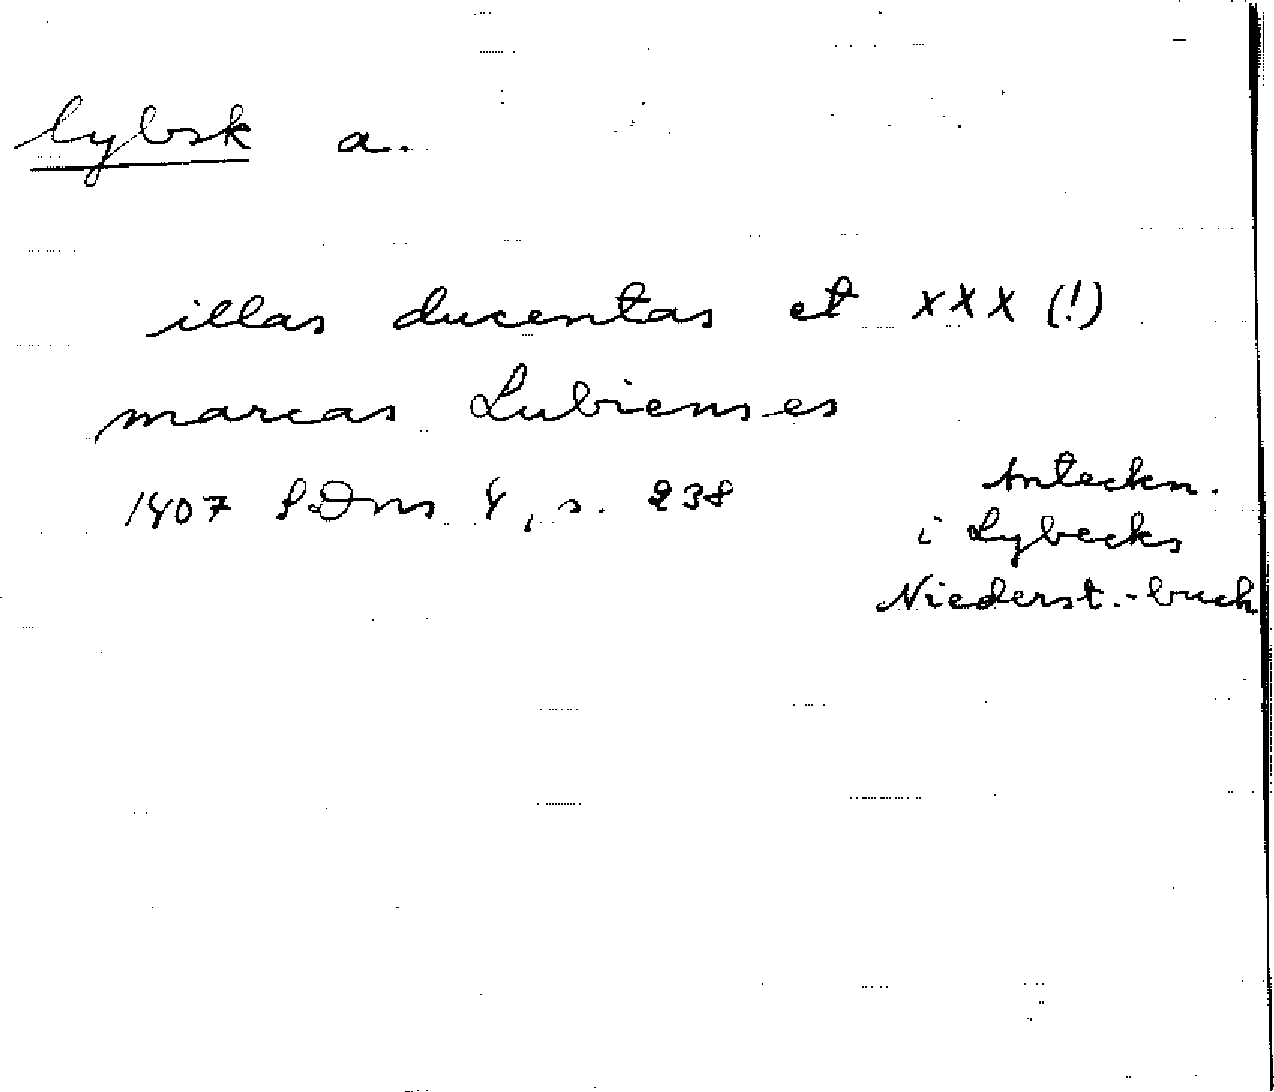 lybsk a.
illas ducentas et XXX (!)
marcas Lubienses
1407 SDns 4, s. 238
Anteckn.
i Lybecks
Niederst.-buch